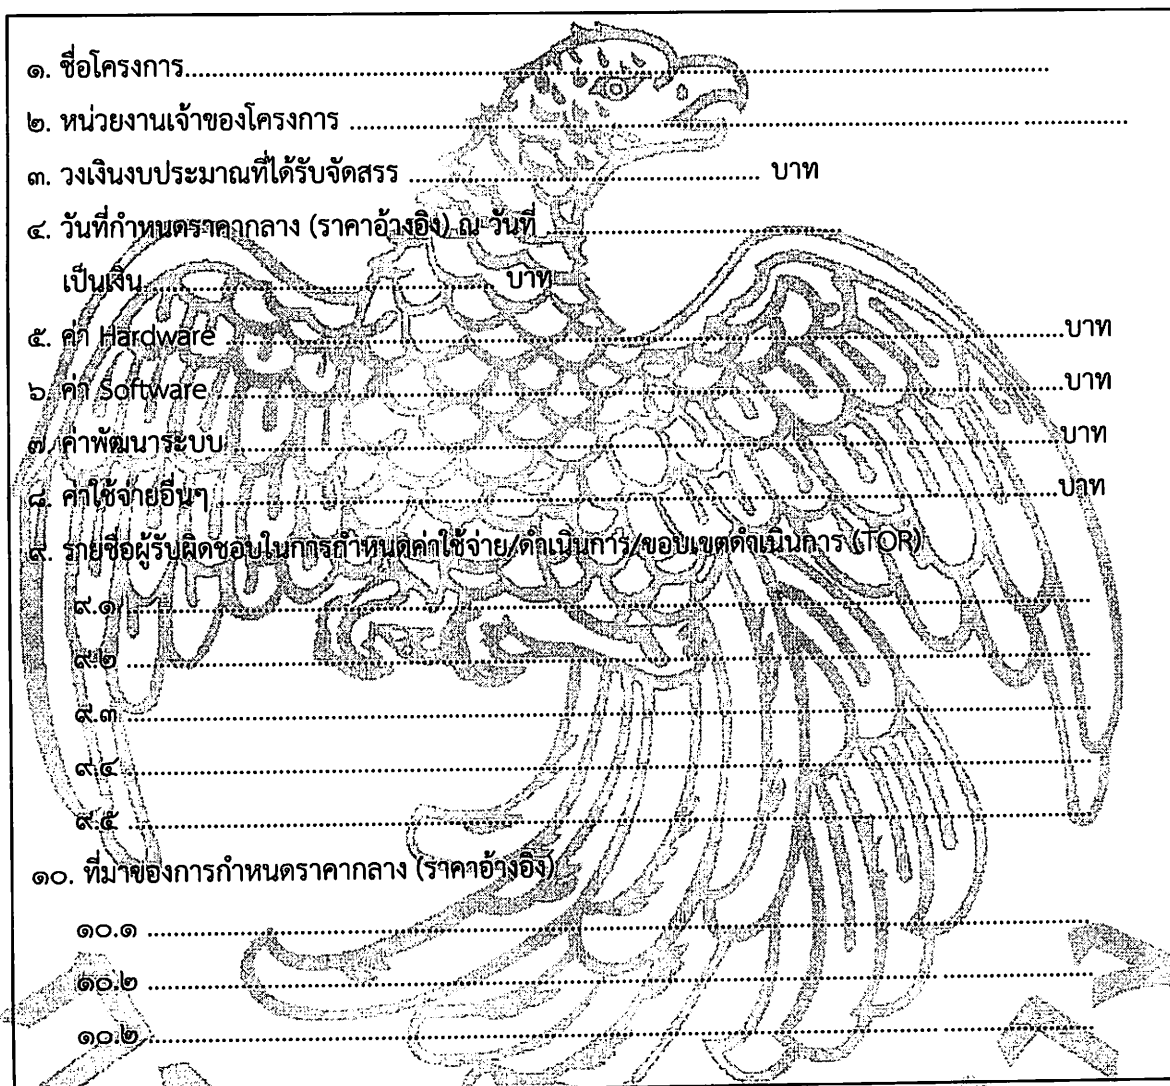 ๑. ชื่อโครงการ........................................................
๒. หน่วยงานเจ้าของโครงการ ........................................................
๓. วงเงินงบประมาณที่ได้รับจัดสรร ........................................ บาท
๔. วันที่กำหนดราคากลาง (ราคาอ้างอิง) ณ วันที่ ........................................
เป็นเงิน........................................ บาท
๕. ค่า Hardware ........................................................บาท
๖. ค่า Software ........................................................บาท
๗. ค่าพัฒนาระบบ ........................................................บาท
๘. ค่าใช้จ่ายอื่นๆ ........................................................บาท
๙. รายชื่อผู้รับผิดชอบในการกำหนดค่าใช้จ่าย/ดำเนินการ/ขอบเขตดำเนินการ (TOR)
๙.๑ ........................................................
๙.๒ ........................................................
๙.๓ ........................................................
๙.๔ ........................................................
๙.๕ ........................................................
๑๐. ที่มาของการกำหนดราคากลาง (ราคาอ้างอิง)
๑๐.๑ ........................................................
๑๐.๒ ........................................................
๑๐.๒ ........................................................